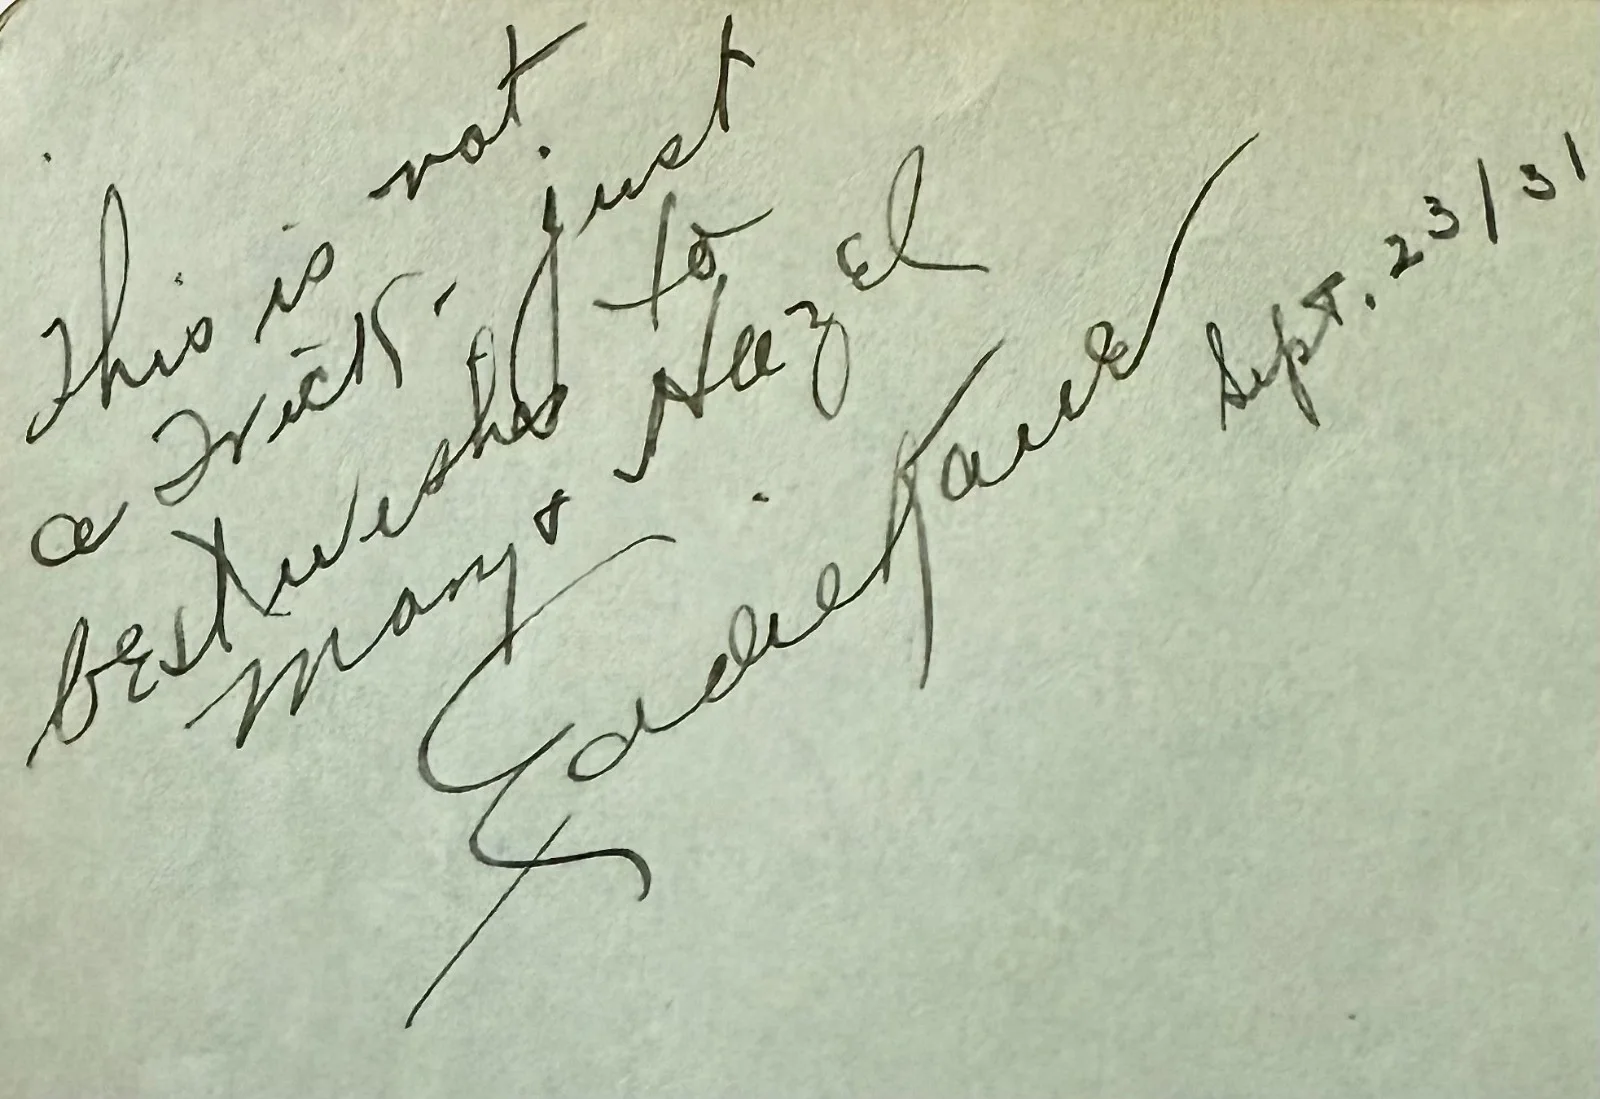 This is not
a Trick - just
best wishes to
Mary & Hazel
Sept. 23/31